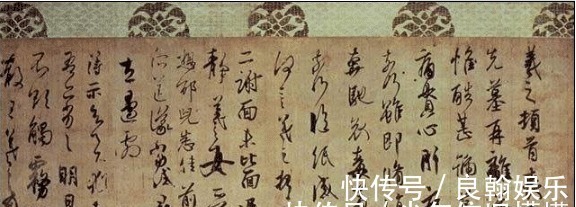 羲之頓首
先墓再離
惟酷甚號
痛貫心肝
奈何雖即脩
奔馳哀毒
奈何臨紙感
何言羲之頓
二謝面未比面
靜羲之女
邵兒悉佳前
送議當
左邊劇
得示知足下
吾明日
不欲觸霧
散王羲之
快传号／良翰娱乐